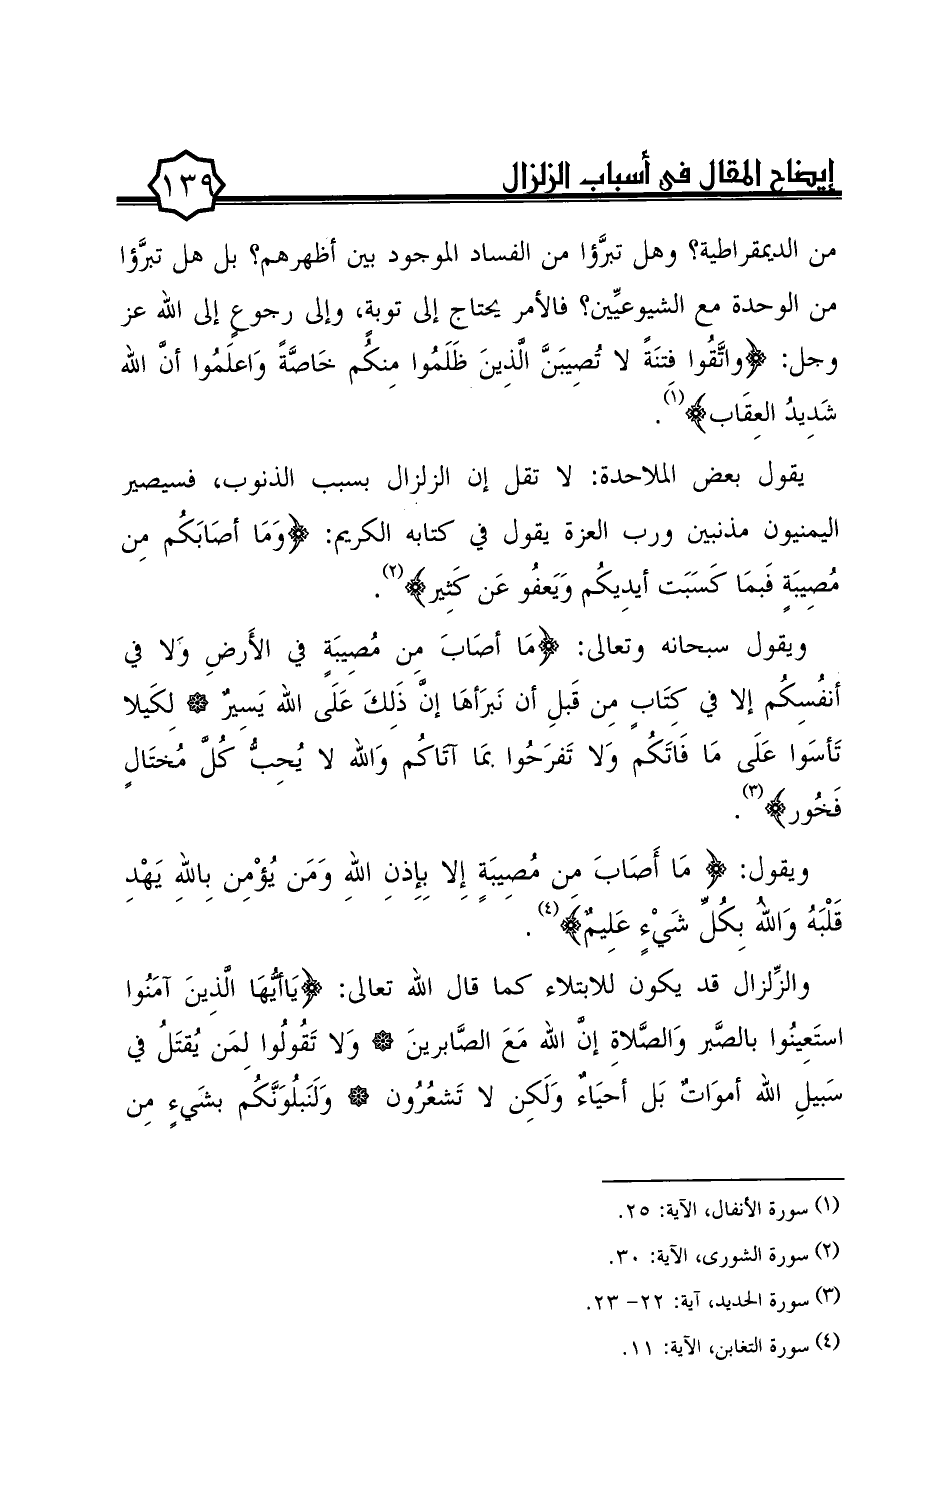 إيضاح المقال في أسباب الزلزال
١٣٩
من الديمقراطية؟ وهل تبرَّؤا من الفساد الموجود بين أظهرهم؟ بل هل تبرَّؤا
من الوحدة مع الشيوعيِّين؟ فالأمر يحتاج إلى توبةٍ، وإلى رجوعٍ إلى الله عز
وجل: ﴿واتَّقُوا فِتنَةً لا تُصِيبَنَّ الَّذِينَ ظَلَمُوا مِنكُم خَاصَّةً وَاعلَمُوا أنَّ الله
شَدِيدُ العِقَاب﴾(١).
يقول بعض الملاحدة: لا تقل إن الزلزال بسبب الذنوب، فسيصير
اليمنيون مذنبين ورب العزة يقول في كتابه الكريم: ﴿وَمَا أصَابَكُم مِن
مُصِيبَةٍ فَبِمَا كَسَبَت أيدِيكُم وَيَعفُو عَن كَثِير﴾(٢).
ويقول سبحانه وتعالى: ﴿مَا أصَابَ مِن مُصِيبَةٍ فِي الأَرضِ وَلا فِي
أنفُسِكُم إلا فِي كِتَابٍ مِن قَبلِ أن نَبرَأهَا إنَّ ذَلِكَ عَلَى الله يَسِيرٌ ۞ لِكَيلا
تَأسَوا عَلَى مَا فَاتَكُم وَلا تَفرَحُوا بِمَا آتَاكُم وَالله لا يُحِبُّ كُلَّ مُختَالٍ
فَخُور﴾(٣).
ويقول: ﴿ مَا أَصَابَ مِن مُصِيبَةٍ إِلا بِإِذنِ اللهِ وَمَن يُؤْمِن بِاللهِ يَهْدِ
قَلْبَهُ وَاللهُ بِكُلِّ شَيْءٍ عَلِيمٌ﴾(٤).
والزِّلزال قد يكون للابتلاء كما قال الله تعالى: ﴿يَاأيُّهَا الَّذِينَ آمَنُوا
استَعِينُوا بالصَّبر وَالصَّلاةِ إنَّ الله مَعَ الصَّابرينَ ۞ وَلا تَقُولُوا لِمَن يُقتَلُ فِي
سَبيلِ الله أموَاتٌ بَل أحيَاءٌ وَلَكِن لا تَشعُرُون ۞ وَلَنَبلُوَنَّكُم بشَيءٍ مِن
(١) سورة الأنفال، الآية: ٢٥.
(٢) سورة الشورى، الآية: ٣٠.
(٣) سورة الحديد، آية: ٢٢- ٢٣.
(٤) سورة التغابن، الآية: ١١.